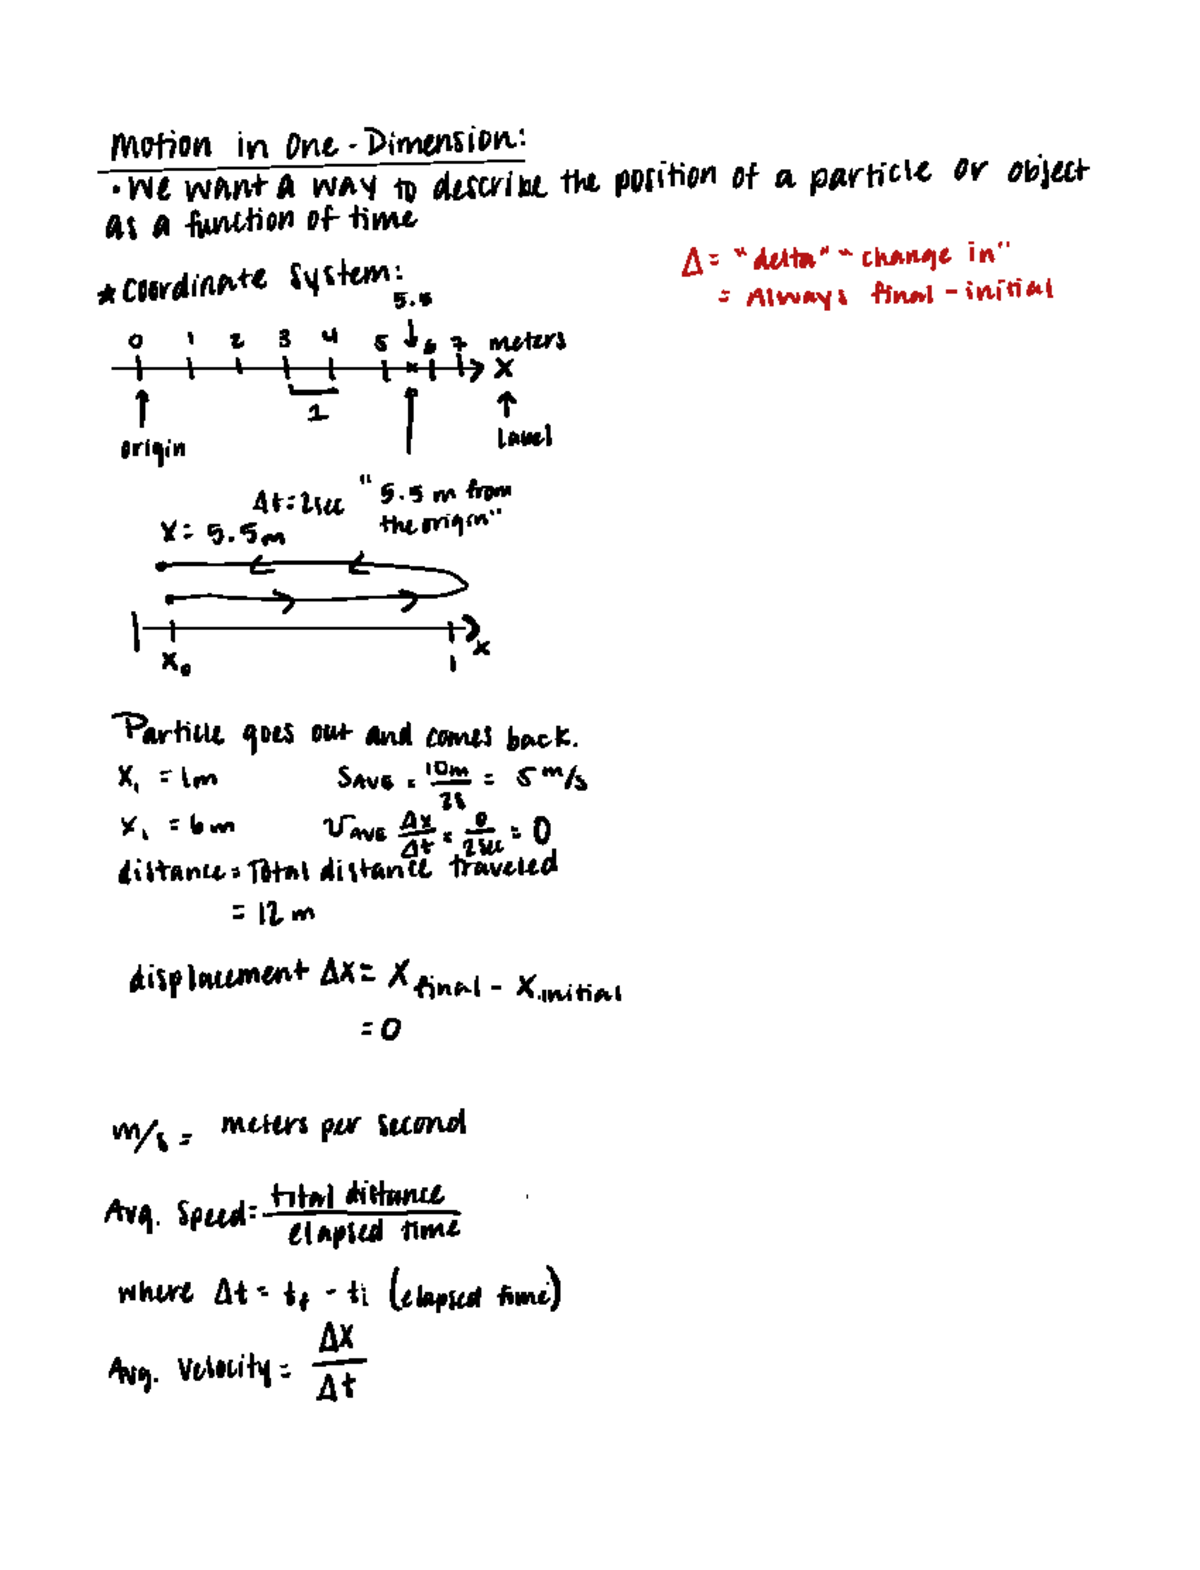 Motion in One-Dimension:
• We want a way to describe the position of a particle or object
as a function of time
Δ = "delta" ~ change in"
= Always final - initial
★ Coordinate System:
5.5
0 1 2 3 4 5 6 7 meters
X
1
origin
label
Δt = 2sec
"5.5 m from
the origin"
X = 5.5m
X₀ 1 x
Particle goes out and comes back.
X₁ = 1m SAVE = 10m/2s = 5 m/s
X₁ = 6m VAVE Δx/Δt = 0/2sec = 0
distance = Total distance traveled
= 12 m
displacement Δx = X final - X initial
= 0
m/s = meters per second
Avg. Speed = total distance / elapsed time
where Δt = tf - ti (elapsed time)
Avg. Velocity = ΔX/Δt